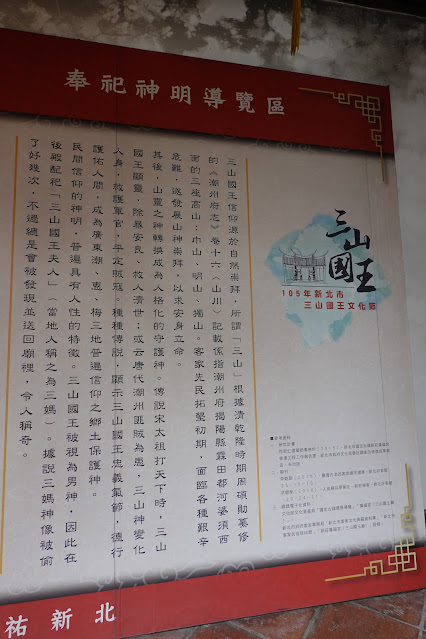 奉祀神明導覽區
三山國王
105年新北市
三山國王文化節
三山國王信仰源於自然崇拜，所謂「三山」根據清乾隆時期周碩勛纂修
的《潮州府志》卷十六〈山川〉記載係指潮州府揭陽縣霖田都河婆須西
面的三座高山：巾山、明山、揭山。客家先民拓墾初期，面臨各種艱辛
危難，遂發展山神崇拜，以求安身立命。
其後，山靈之神轉換成為人格化的守護神。傳說宋太祖打天下時，三山
國王顯靈，除暴安良、救人濟世；或云唐代潮州匪賊為患，三山神變化
人身，救護軍官，平定賊寇。種種傳說，顯示三山國王忠義氣節，德行
護佑人間，成為廣東潮、惠、梅三地普遍信仰之鄉土保護神。
民間信仰的神明，普遍具有人性的特徵。三山國王被視為男神，因此在
後殿配祀「三山國王夫人」（當地人稱之為三媽）。據說三媽神像被偷
了好幾次，不過總是會被發現並送回廟裡，令人稱奇。
北新祐